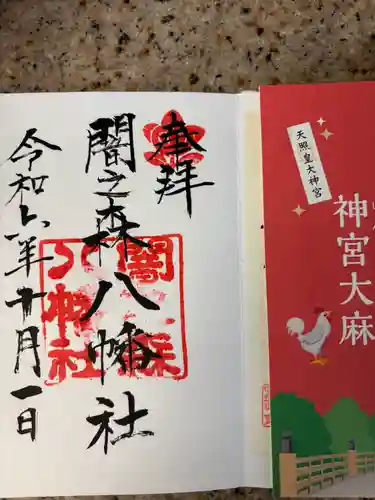 奉拝
闇之森八幡社
令和六年十月一日
闇之森八幡社
天照皇大神宮
神宮大麻